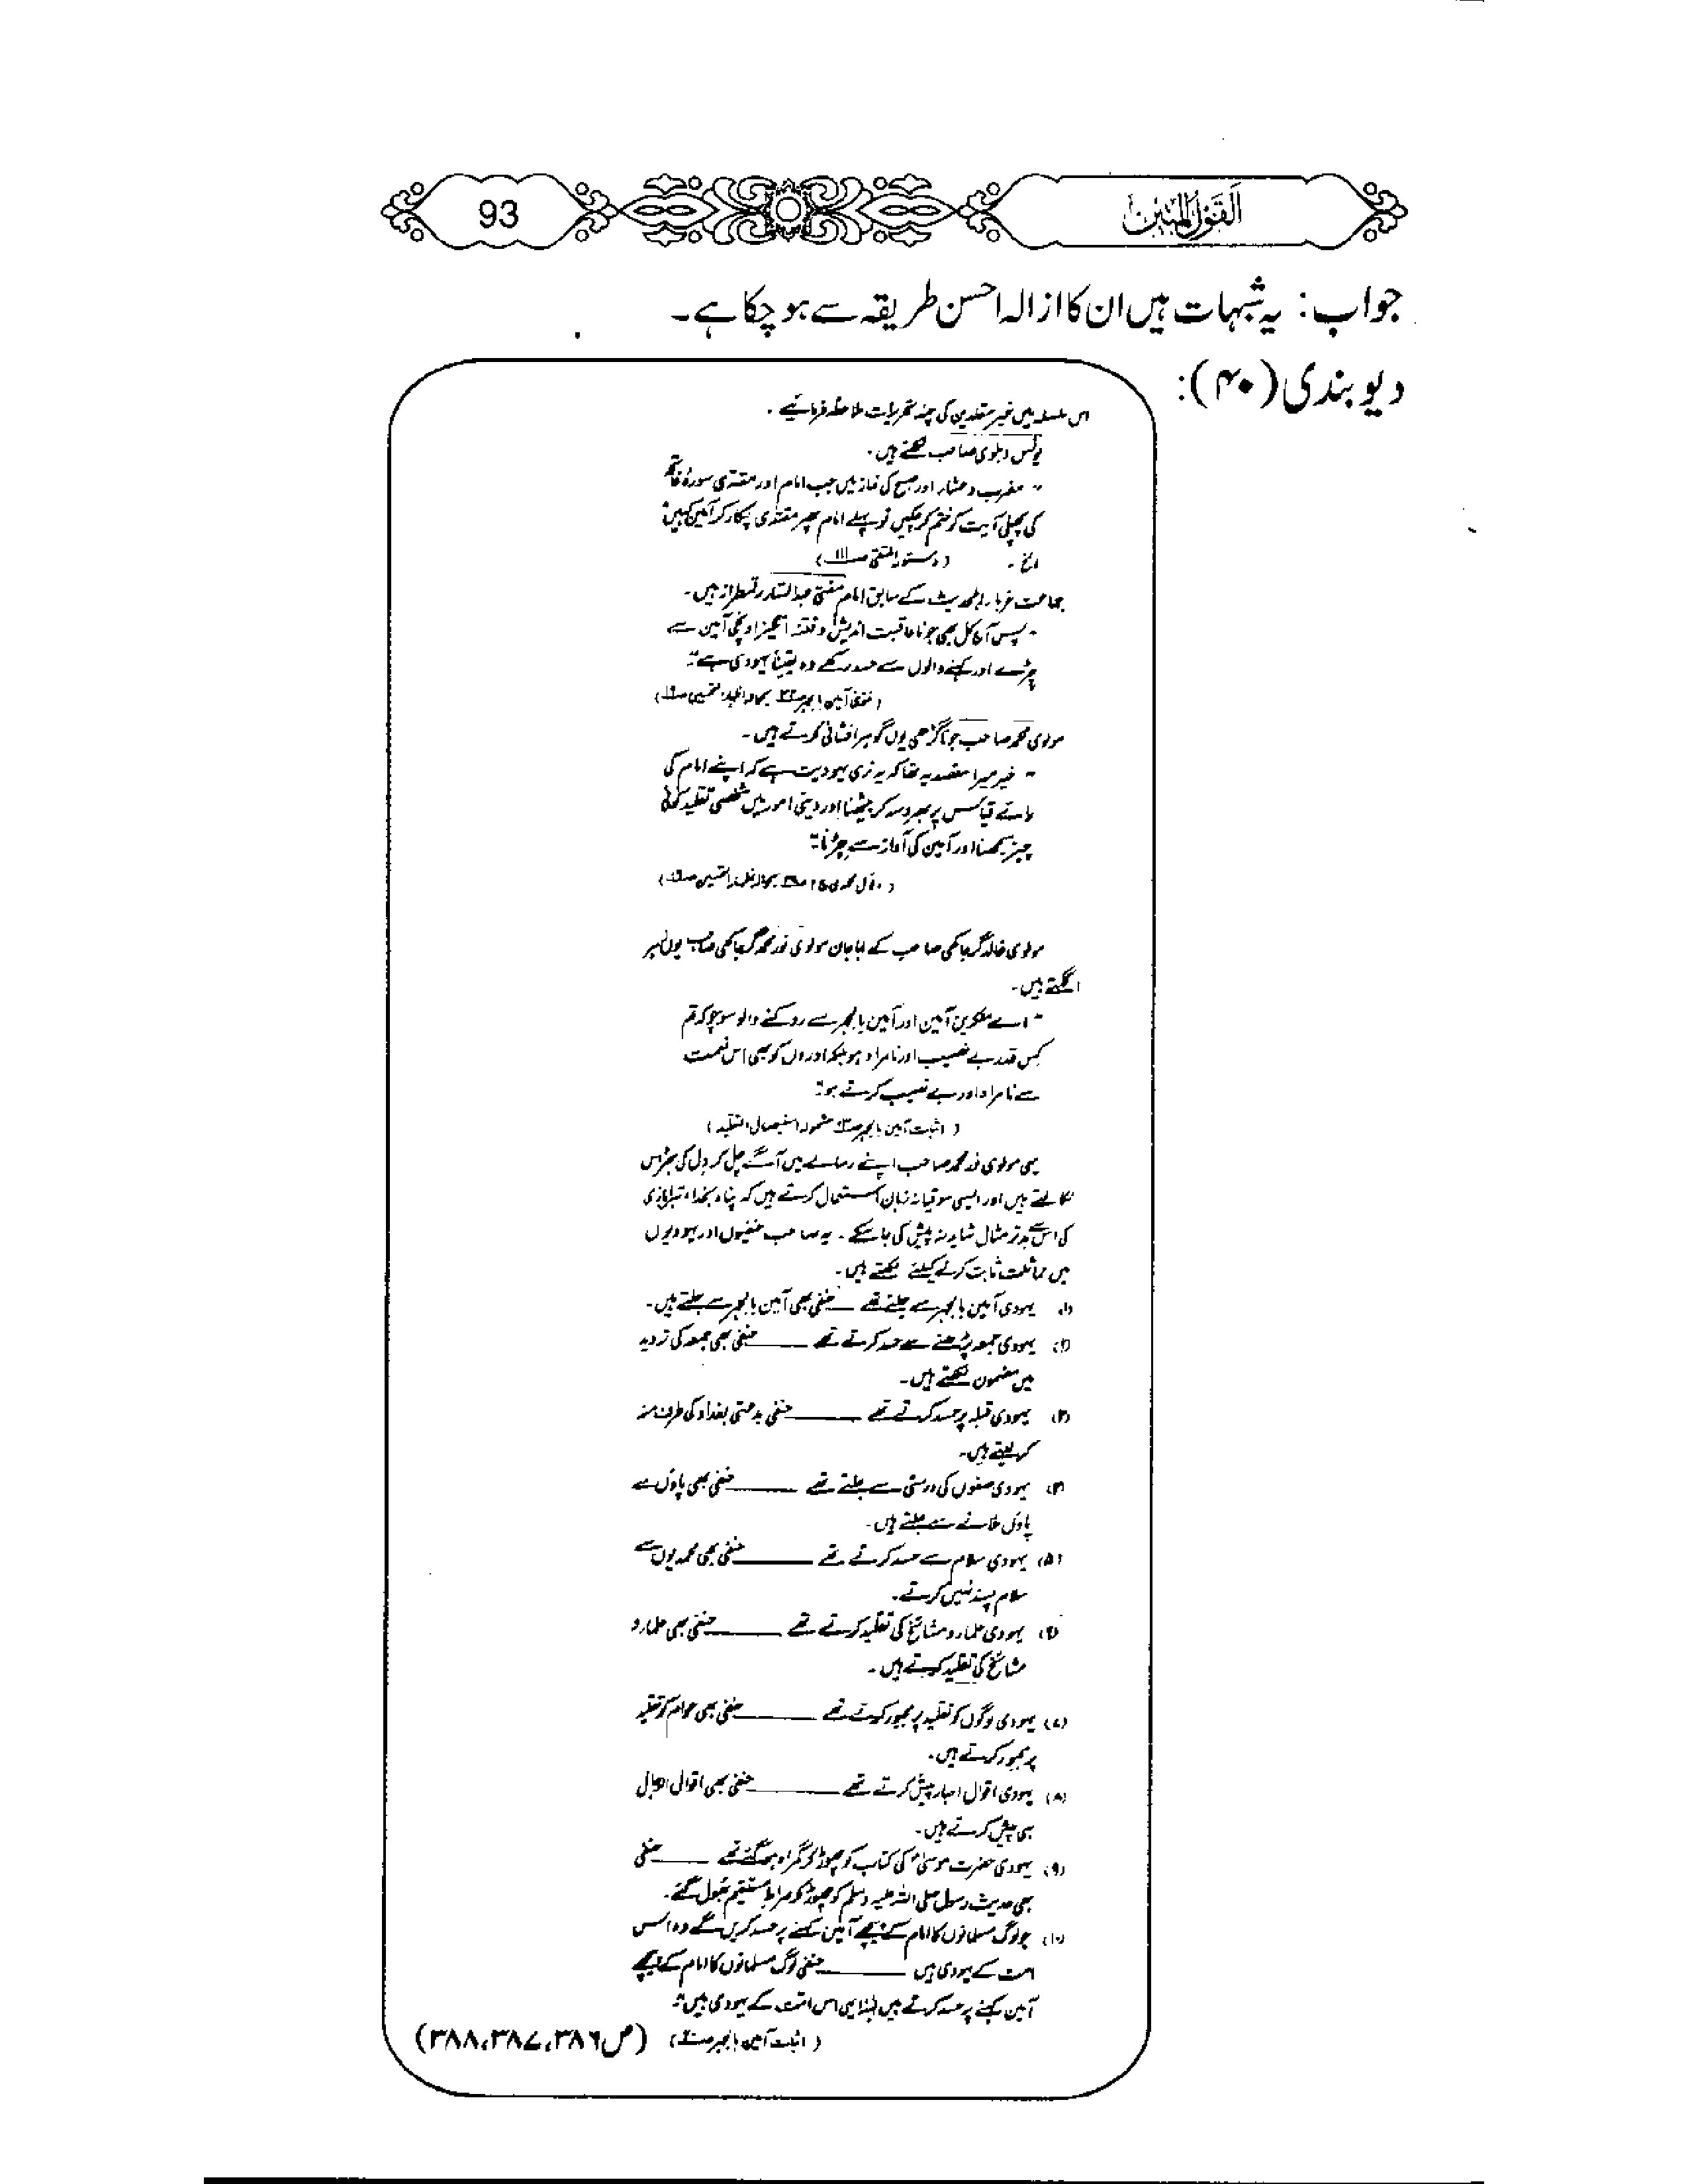 القول المبین
93
جواب: یہ شبہات ہیں ان کا ازالہ احسن طریقہ سے ہو چکا ہے۔
دیوبندی (۴۰):
اس سلسلہ میں غیر مقلدین کی چند تحریرات ملاحظہ فرمائیے۔
یونس دہلوی صاحب لکھتے ہیں۔
" مغرب و عشار اور صبح کی نماز میں جب امام اور مقتدی سورۂ فاتحہ
کی پچھلی آیت کو ختم کر چکیں تو پہلے امام پھر مقتدی پکار کر آمین کہیں"
الخ۔ (دستور المتقی صـ۱۱۱)
جماعت غرباء اہلحدیث کے سابق امام مفتی عبدالستار رقمطراز ہیں۔
"پس آج کل بھی جو ناعاقبت اندیش و فتنہ انگیز اونچی آمین سے
چڑے اور کہنے والوں سے حسد رکھے وہ یقیناً یہودی ہے"۔
(فتوی آمین بالجہر
مولوی محمد صاحب جوناگڑھی یوں گوہر افشانی کرتے ہیں۔
" خیر میرا مقصد یہ تھا کہ یہ نری یہودیت ہے کہ اپنے امام کی
رائے قیاس پر بھروسہ کر بیٹھنا اور دینی امور میں شخصی تقلید کوئی
چیز سمجھنا اور آمین کی آواز سے چڑنا"
مولوی خالد گرجاکھی صاحب کے ابا جان مولوی نور محمد گرجاکھی صاحب یوں زہر
اگلتے ہیں۔
" اے منکرین آمین اور آمین بالجہر سے روکنے والو سوچو کہ تم
کس قدر بے نصیب اور نامراد ہو بلکہ اوروں کو بھی اس نعمت
سے نامراد اور بے نصیب کرتے ہو"
(اثبات آمین بالجہر مشمولہ استیصال التقلید)
یہی مولوی نور محمد صاحب اپنے رسالے میں آگے چل کر دل کی بھڑاس
نکالتے ہیں اور ایسی سوقیانہ زبان استعمال کرتے ہیں کہ پناہ بخدا، تبرابازی
کی اس سے بدتر مثال شاید نہ پیش کی جا سکے۔ یہ صاحب حنفیوں اور یہودیوں
میں مماثلت ثابت کرنے کیلئے لکھتے ہیں۔
(۱) یہودی آمین بالجہر سے جلتے تھے ــــ حنفی بھی آمین بالجہر سے جلتے ہیں۔
(۲) یہودی جمعہ پڑھنے سے حسد کرتے تھے ــــ حنفی بھی جمعہ کی تردید
میں مضمون لکھتے ہیں۔
(۳) یہودی قبلہ پر حسد کرتے تھے ــــ حنفی بدعتی بغداد کی طرف منہ
کر لیتے ہیں۔
(۴) یہودی صفوں کی درستی سے جلتے تھے ــــ حنفی بھی پاؤں سے
پاؤں ملانے سے جلتے ہیں۔
(۵) یہودی سلام سے حسد کرتے تھے ــــ حنفی بھی محمدیوں سے
سلام پسند نہیں کرتے۔
(۶) یہودی علماء و مشائخ کی تقلید کرتے تھے ــــ حنفی بھی علماء و
مشائخ کی تقلید کرتے ہیں۔
(۷) یہودی لوگوں کو تقلید پر مجبور کرتے تھے ــــ حنفی بھی عوام کو تقلید
پر مجبور کرتے ہیں۔
(۸) یہودی اقوال احبار پیش کرتے تھے ــــ حنفی بھی اقوال رجال
ہی پیش کرتے ہیں۔
(۹) یہودی حضرت موسیٰ کی کتاب کو چھوڑ کر گمراہ ہو گئے تھے ــــ حنفی
بھی حدیث رسول صلی اللہ علیہ وسلم کو چھوڑ کر صراط مستقیم بھول گئے۔
(۱۰) جو لوگ مسلمانوں کا امام کے پیچھے آمین کہنے پر حسد کریں گے وہ اس
امت کے یہودی ہیں ــــ حنفی لوگ مسلمانوں کا امام کے پیچھے
آمین کہنے پر حسد کرتے ہیں لہٰذا یہی اس امت کے یہودی ہیں"
(اثبات آمین بالجہر (ص۳۸۶،۳۸۷،۳۸۸)